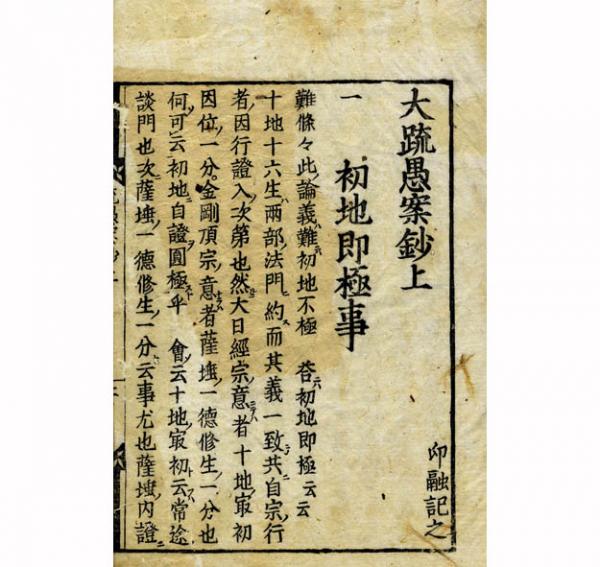 大疏愚案鈔上
印融記之
一　初地即極事
難條々此論義難初地不極　荅初地即極云云
十地十六生兩部法門約而其義一致共自宗行
者因行證入次第也然大日經宗意者十地㝡初
因位一分金剛頂宗意者薩埵一德修生一分也
何可云初地自證圓極乎　會云十地㝡初云常途
談門也次薩埵一德修生一分云事尤也薩埵内證